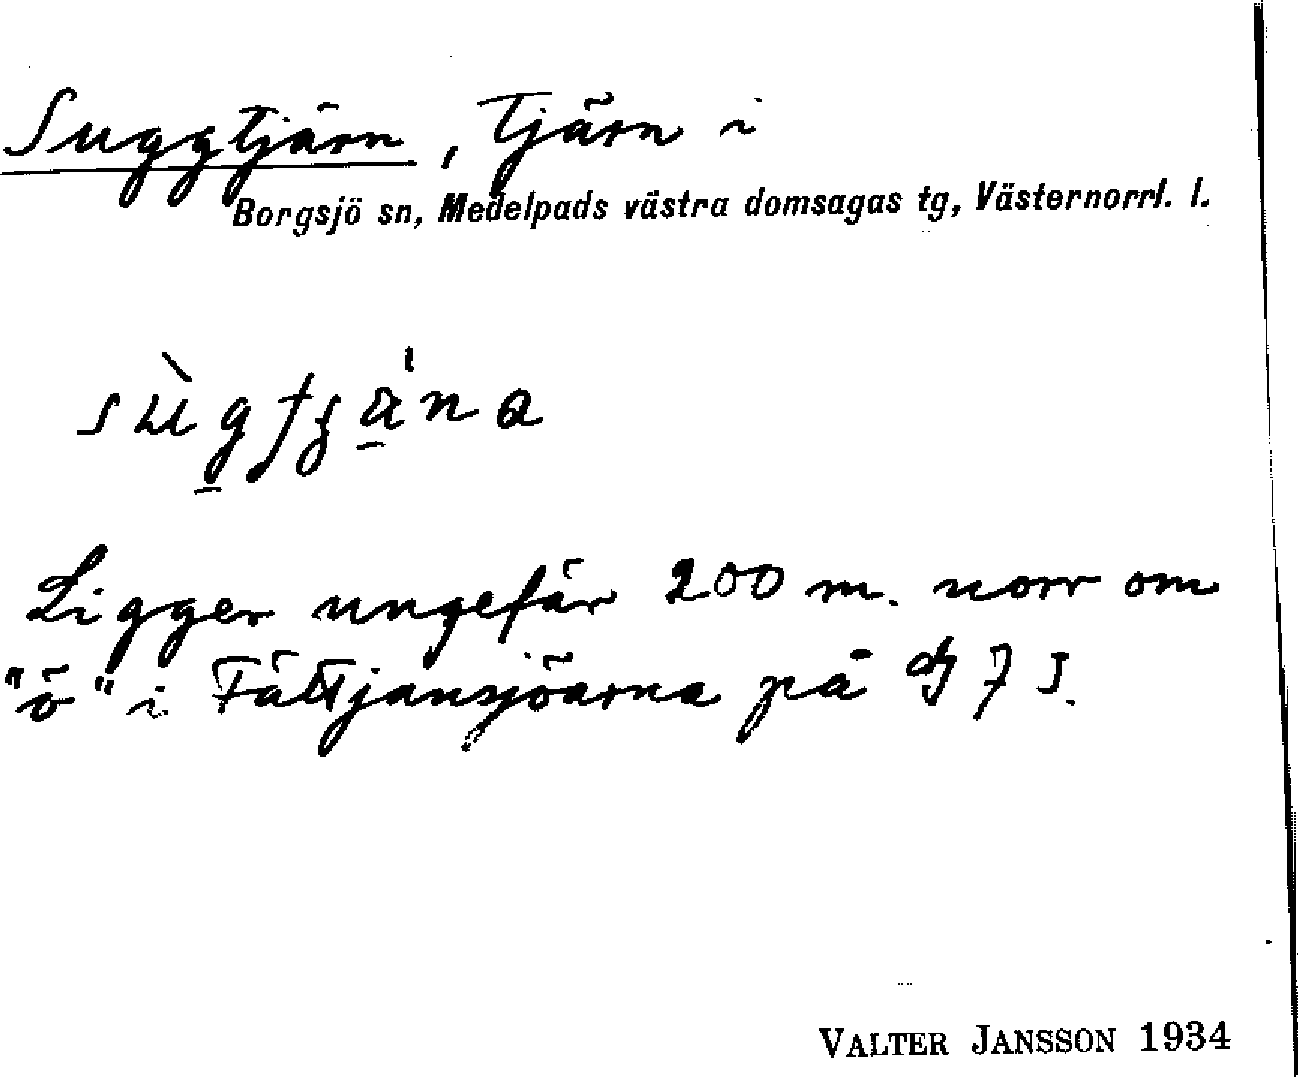 Suggtjärn, Tjärn i
Borgsjö sn, Medelpads västra domsagas tg, Västernorrl. l.
Ligger ungefär 200 m. norr om
"ö" i Fältjansjöarna på dj 7 J.
VALTER JANSSON 1934